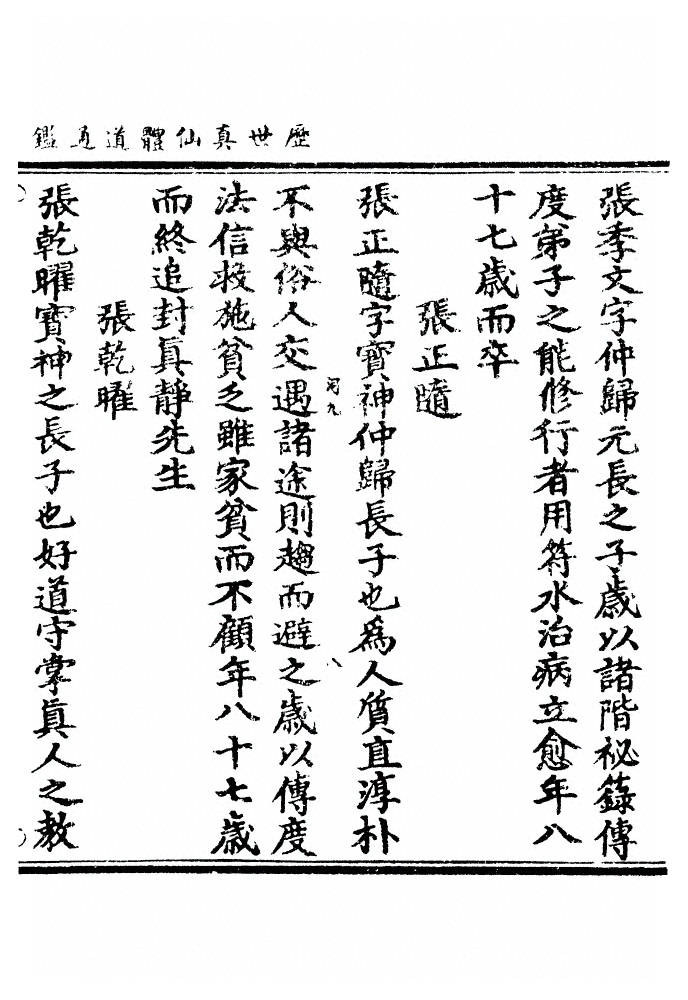 歷世真仙體道通鑑
張季文字仲歸元長之子歲以諸階祕籙傳
度弟子之能修行者用符水治病立愈年八
十七歲而卒
張正隨
張正隨字寶神仲歸長子也爲人質直淳朴
不與俗人交遇諸途則趨而避之歲以傳度
法信救施貧乏雖家貧而不顧年八十七歲
而終追封眞靜先生
張乾曜
張乾曜寶神之長子也好道守掌眞人之教